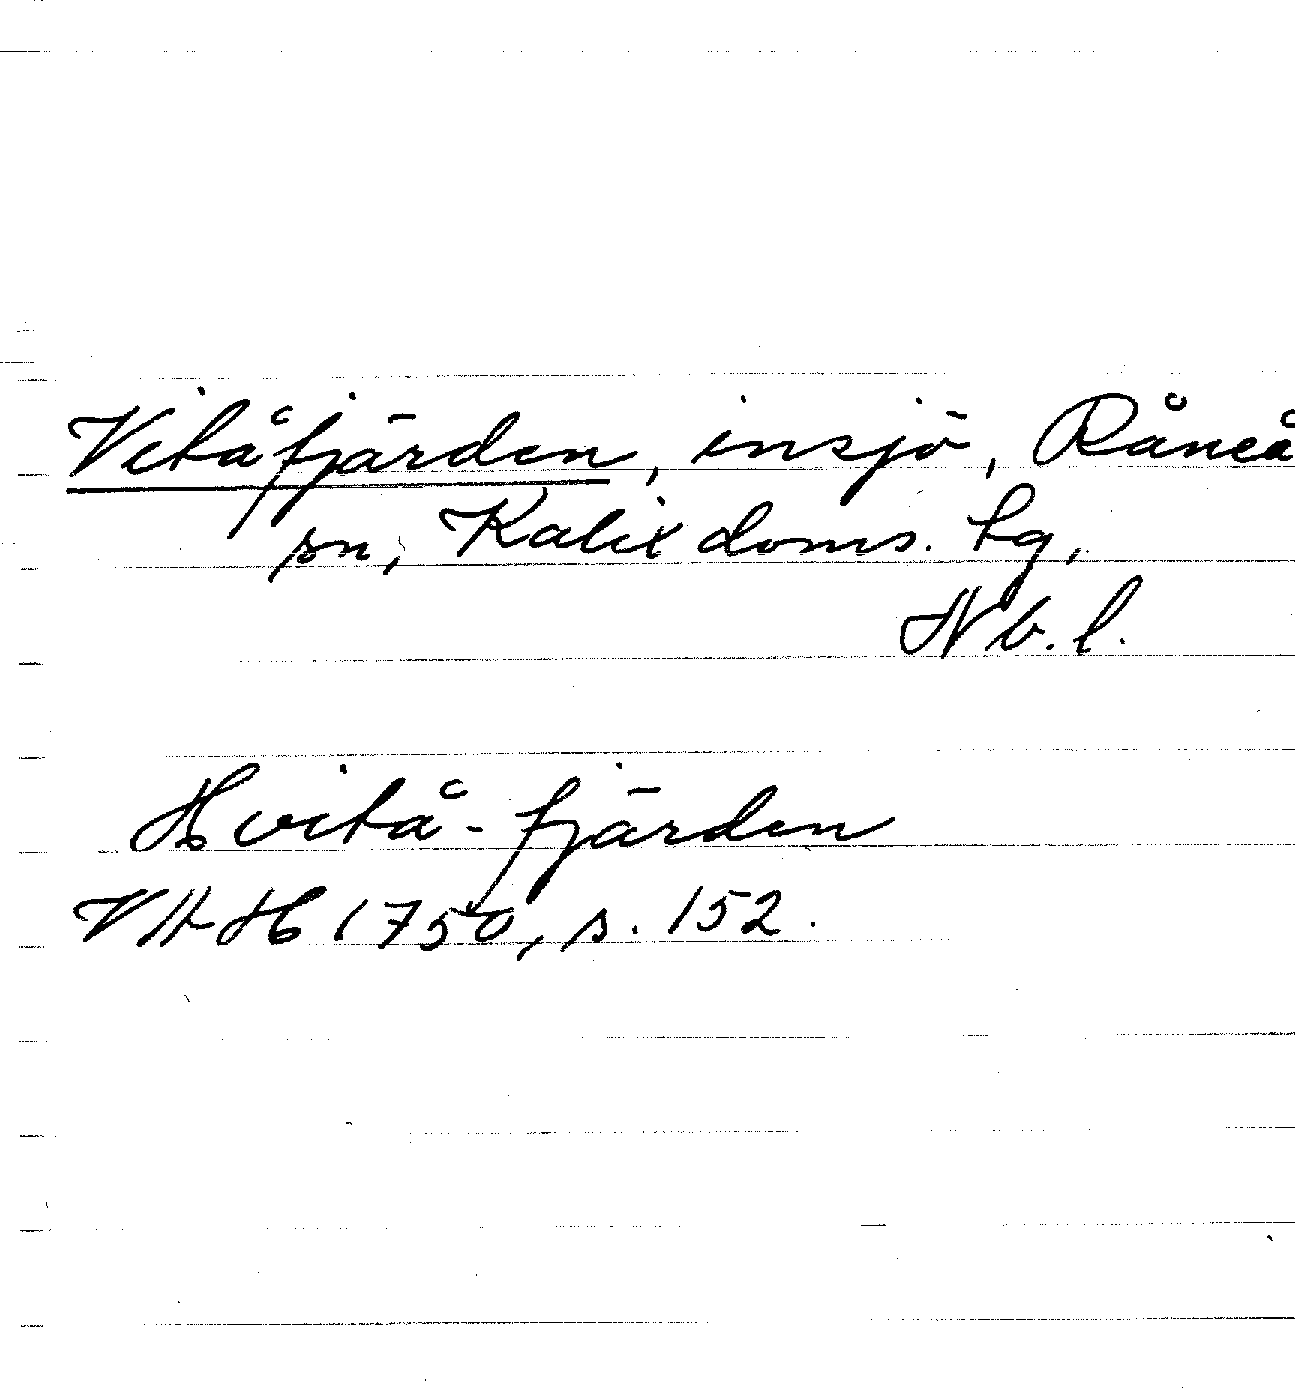 Vitåfjärden, insjö, Råneå
sn, Kalix doms. tg,
Nb. l.
Hvitå-fjärden
VAH 1750, s. 152.